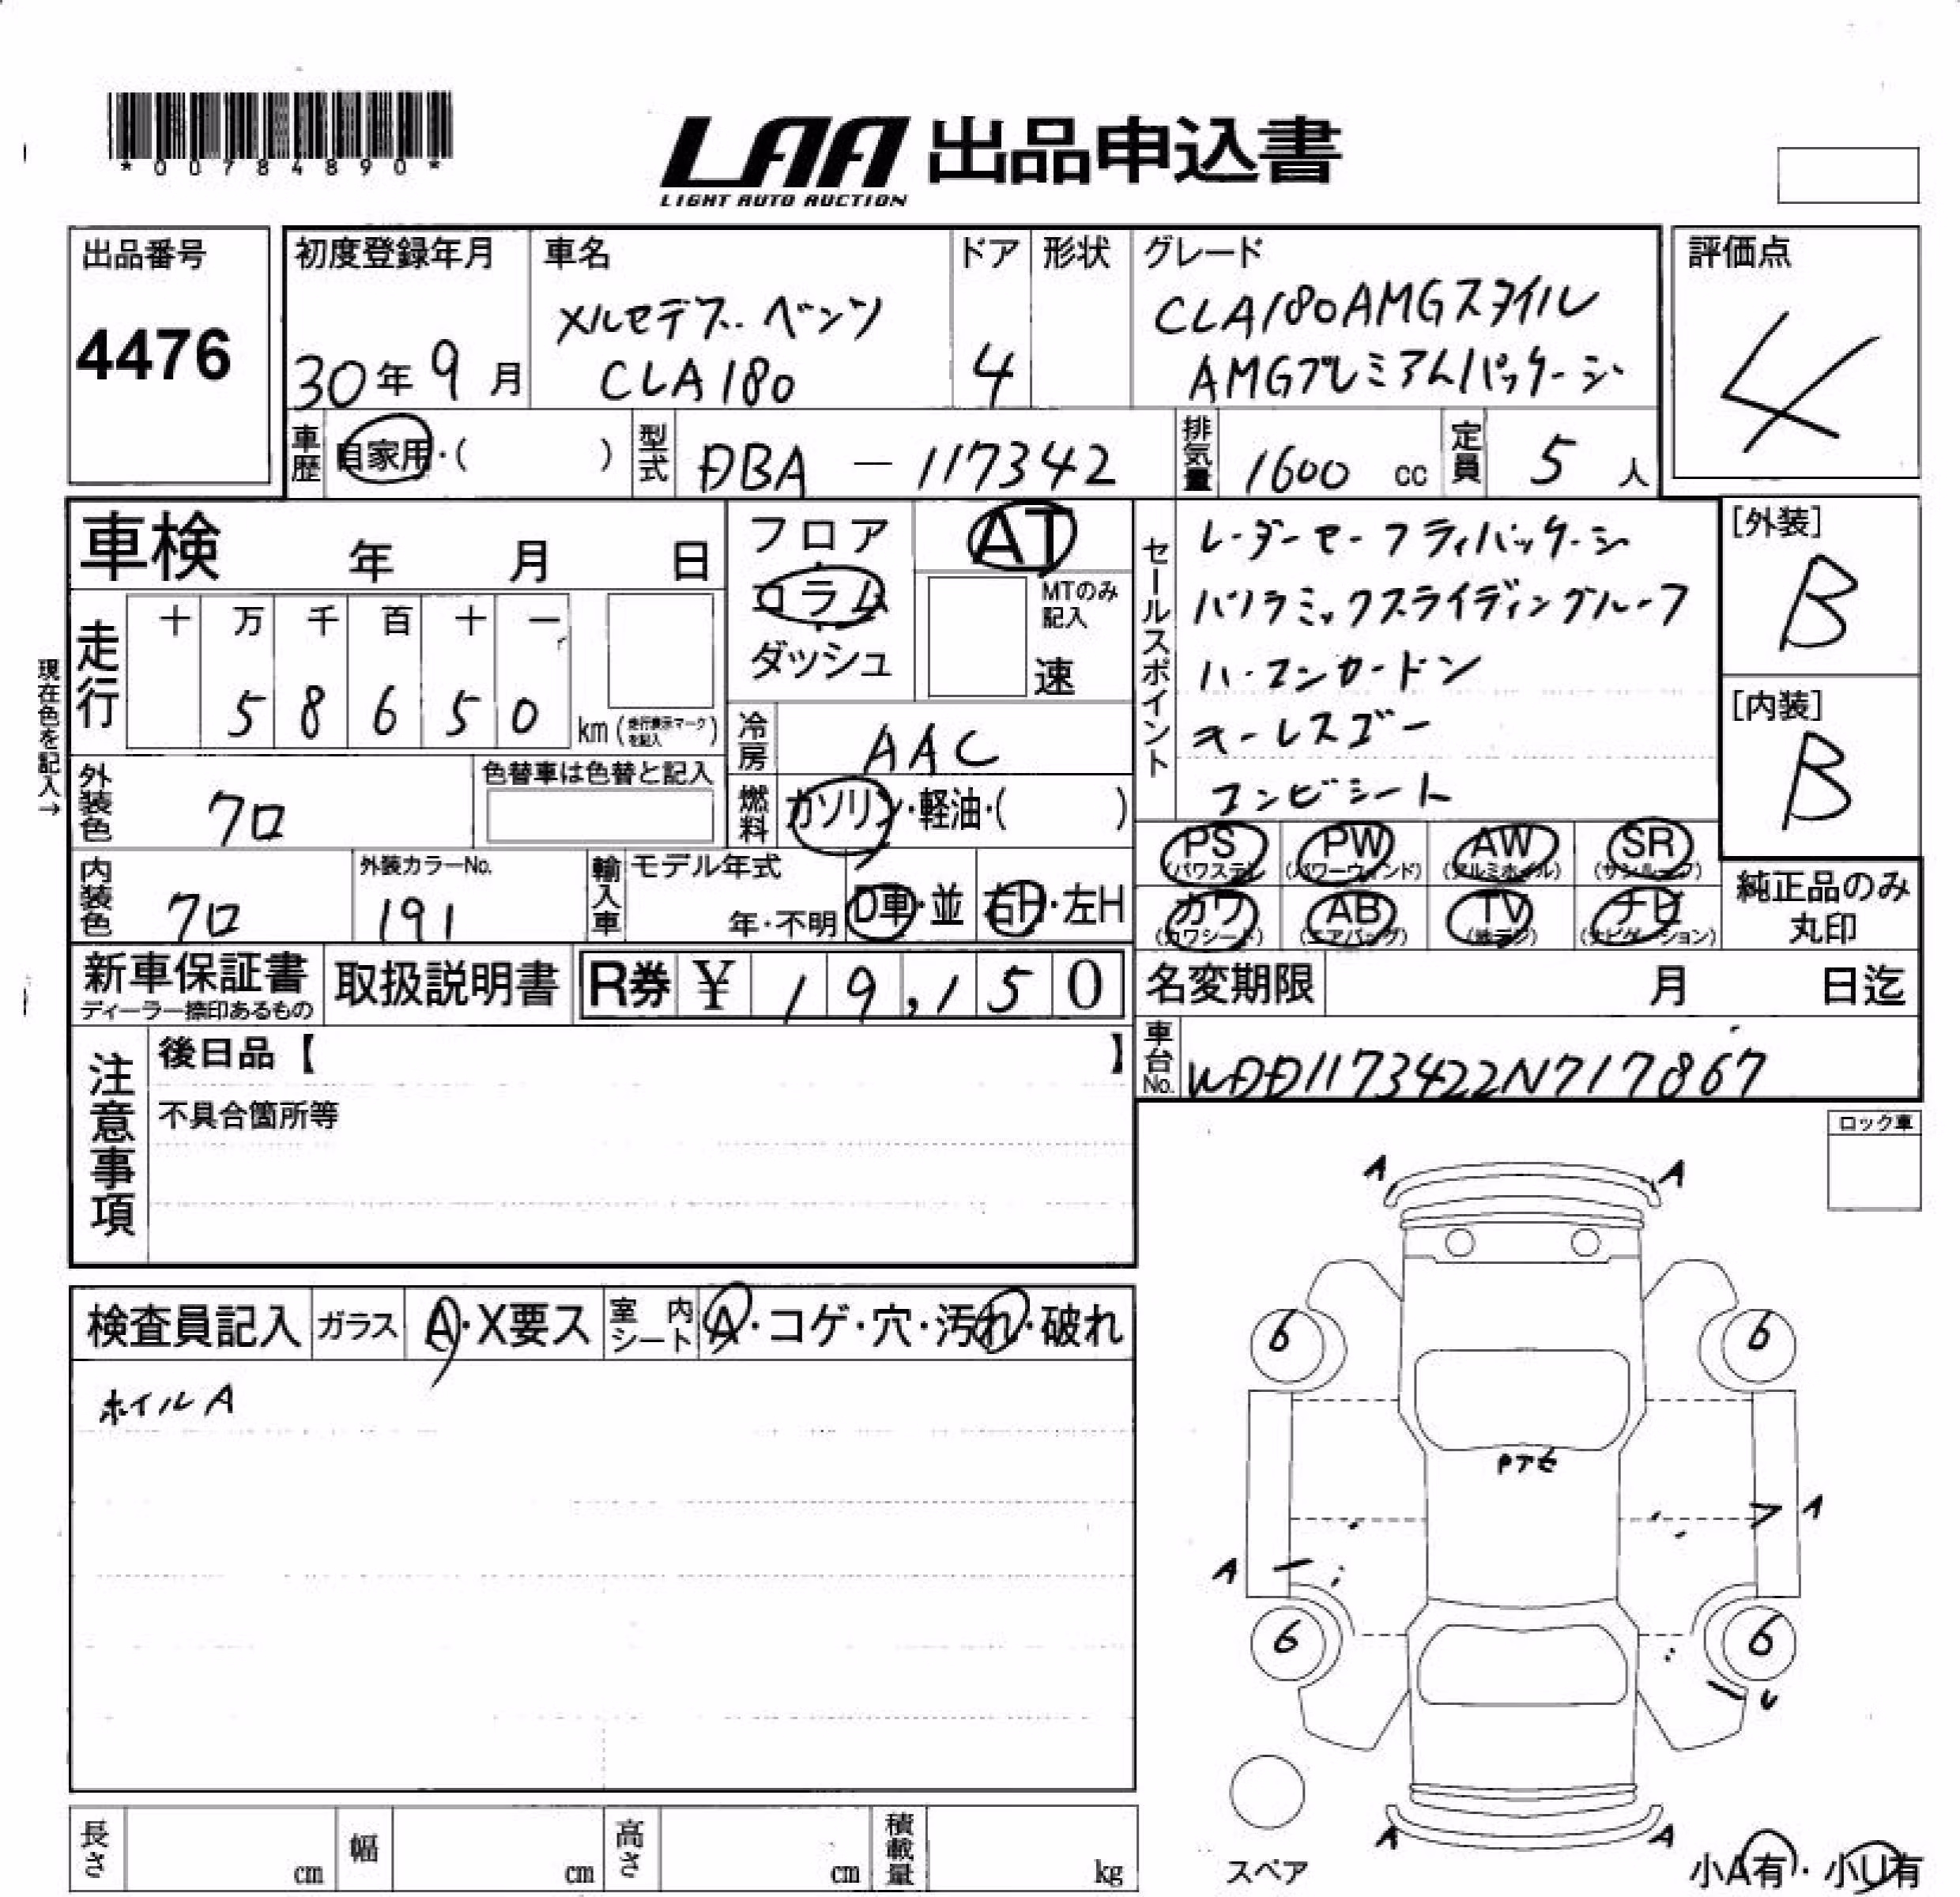 *00784890*
LAA 出品申込書
LIGHT AUTO AUCTION
出品番号
4476
初度登録年月
30年 9月
車名
メルセデス・ベンツ
CLA180
ドア
4
形状
グレード
CLA180AMGスタイル
AMGプレミアムパッケージ
評価点
4
車歴
自家用・( )
型式
DBA － 117342
排気量
1600 cc
定員
5 人
車検 年 月 日
走行
十 万 千 百 十 一
5 8 6 5 0
km (走行表示マークを記入)
現在色を記入→
外装色
クロ
色替車は色替と記入
内装色
クロ
外装カラーNo.
191
輸入車
モデル年式
年・不明
D車・並
右H・左H
フロア
コラム
ダッシュ
AT
MTのみ
記入
速
冷房
AAC
燃料
ガソリン・軽油・( )
セールスポイント
レーダーセーフティパッケージ
パノラミックスライディングルーフ
ハーマンカードン
キーレスゴー
コンビシート
[外装]
B
[内装]
B
PS
(パワステ)
PW
(パワーウィンド)
AW
(アルミホイル)
SR
(サンルーフ)
カワ
(カワシート)
AB
(エアバッグ)
TV
(地デジ)
ナビ
(ナビゲーション)
純正品のみ
丸印
新車保証書
ディーラー捺印あるもの
取扱説明書
R券 ¥ 19,150
名変期限 月 日迄
車台No.
WDD1173422N717867
注意事項
後日品【 】
不具合箇所等
ロック車
検査員記入
ガラス A・X要ス
室内シート A・コゲ・穴・汚れ・破れ
ホイルA
A A
6 6
A
A
6 6
U
A A
スペア
小A有・小U有
長さ cm
幅 cm
高さ cm
積載量 kg